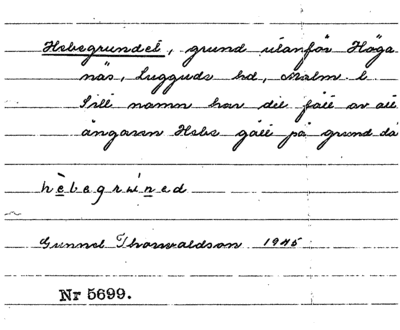 Hebegrundet, grund utanför Höga
näs, Luggude hd, Malm. l.
Sitt namn har det fått av att
ångaren Hebe gått på grund då
hèbegrɯned
Gunnel Thorvaldson 1945
Nr 5699.